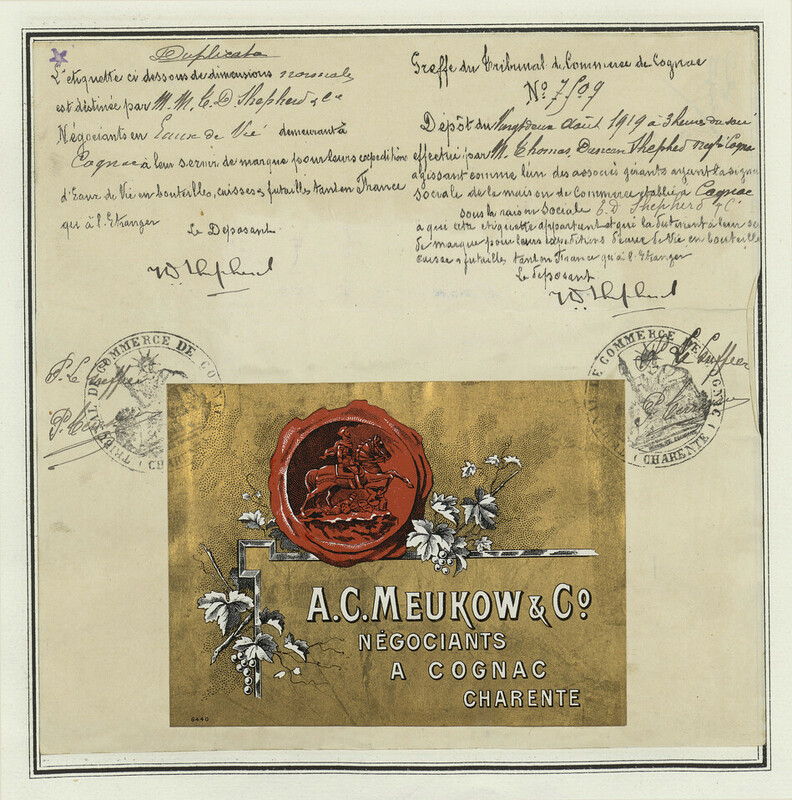 Duplicata
L'étiquette ci dessous de dimensions normales
est destinée par M. M. C. D. Shepherd & Ce
Négociants en Eaux de Vie demeurant à
Cognac à leur servir de marque pour leurs expéditions
d'Eaux de Vie en bouteilles, caisses & futailles tant en France
qu'à l'Etranger
Le Déposant
TD Shepherd
Greffe du Tribunal de Commerce de Cognac
No 7509
Dépôt du Vingt deux Août 1919 à 3 heures du soir
effectué par M. Thomas Duncan Shepherd negt à Cognac
agissant comme l'un des associés gérants ayant la signe
sociale de la maison de Commerce établie à Cognac
sous la raison Sociale C. D Shepherd & Co
a que cette étiquette appartient et qu'il la destinent à leur se
de marque pour leurs expéditions d'eaux de Vie en bouteille
caisse & futailles tant en France qu'à l'Etranger
Le déposant
TD Shepherd
TRIBUNAL DE COMMERCE DE COGNAC (CHARENTE)
P. Le Greffier
TRIBUNAL DE COMMERCE DE COGNAC (CHARENTE)
Le Greffier
A.C. MEUKOW & Co
NÉGOCIANTS
A COGNAC
CHARENTE
6440